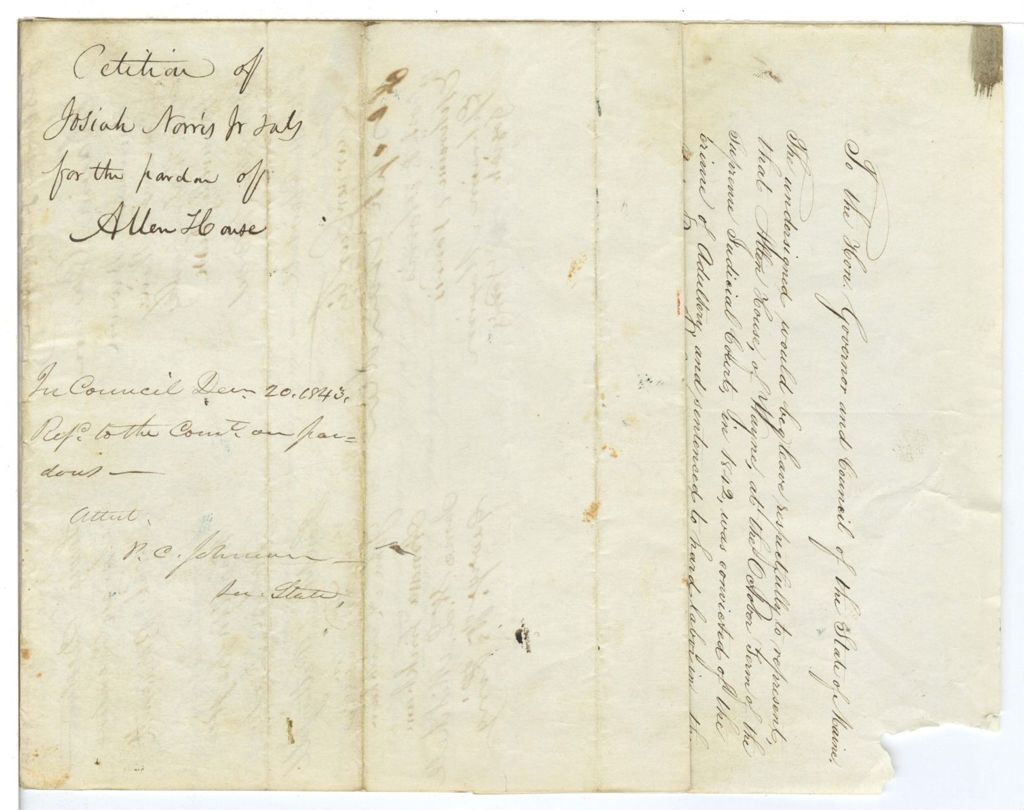 Petition of
Josiah Norris Jr & als
for the pardon of
Allen House
In Council Decr 20. 1843.
Refd to the Comte on par=
dons—
Attest,
P. C. Johnson
Sec. State,
To the Hon. Governor and Council of the State of Maine.
The undersigned would beg leave respectfully to represent,
that Allen House, of Wayne, at the October Term of the
Supreme Judicial Court, in 1842, was convicted of the
crime of Adultery, and sentenced to hard labor in the